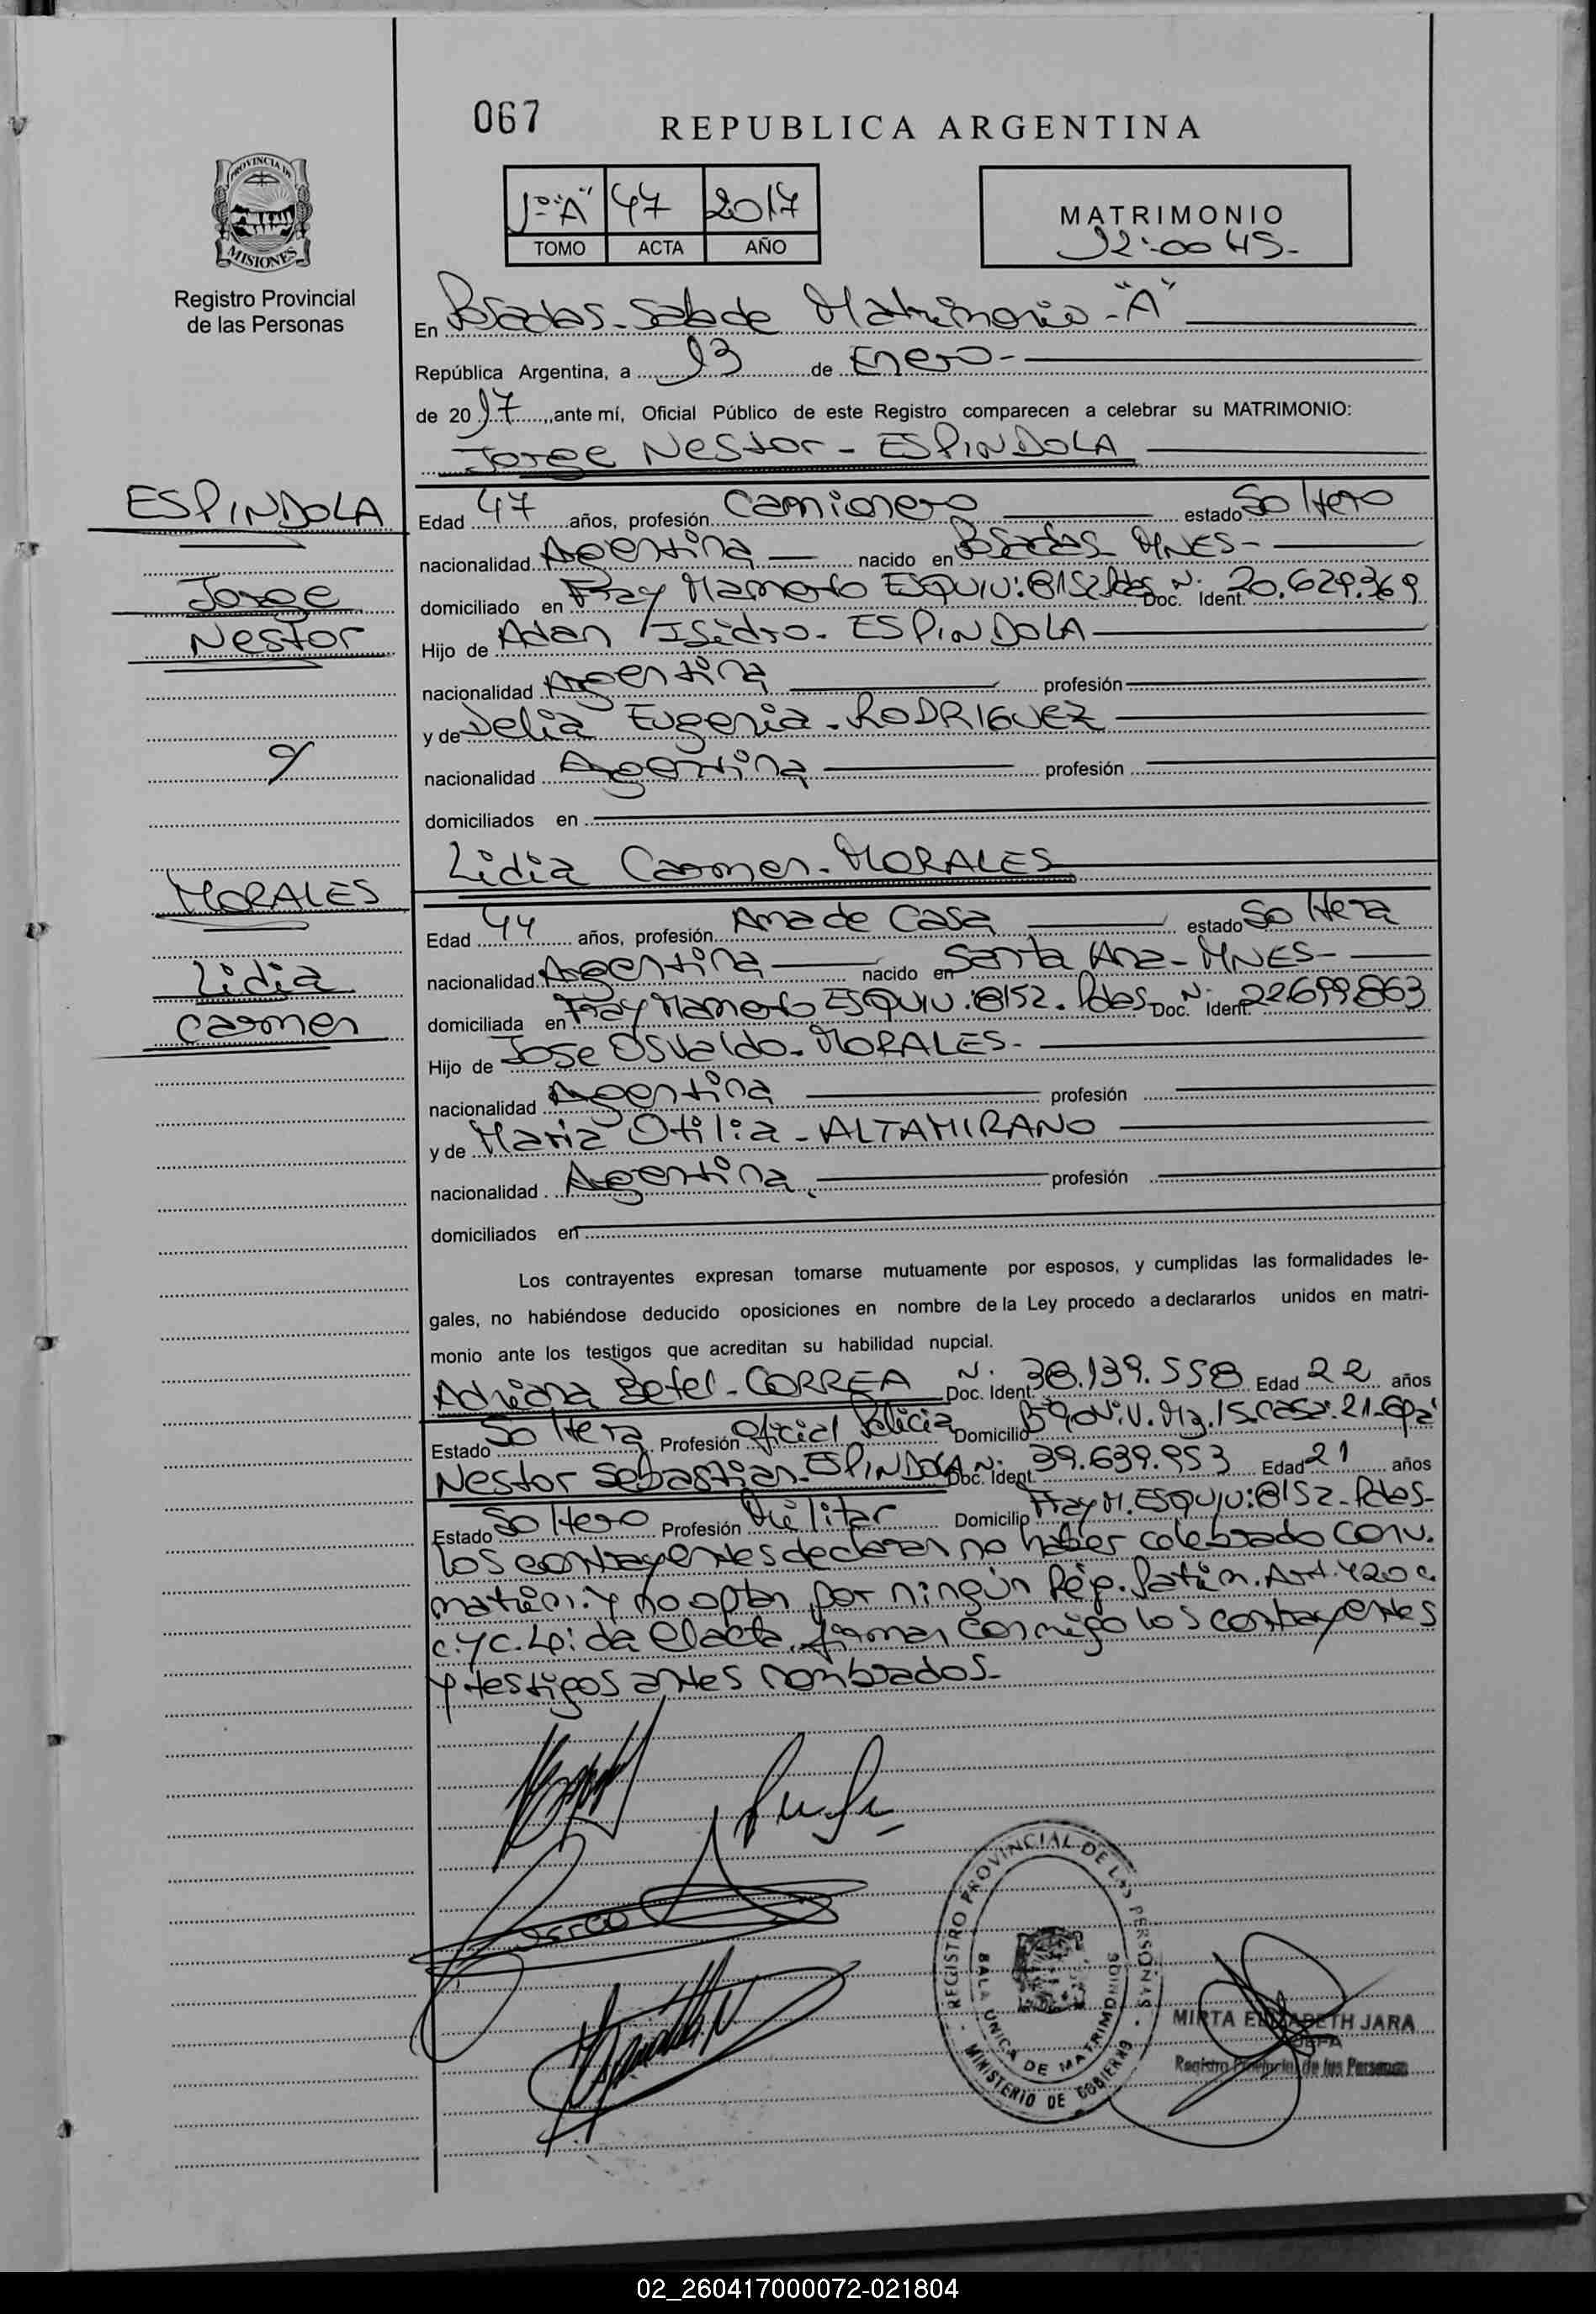 067
REPUBLICA ARGENTINA
1º "A" 47 2017
TOMO ACTA AÑO
MATRIMONIO
12:00 HS-
PROVINCIA DE
MISIONES
Registro Provincial
de las Personas
En Posadas-Sala de Matrimonio-"A"
República Argentina, a 13 de Enero-
de 2017, ante mí, Oficial Público de este Registro comparecen a celebrar su MATRIMONIO:
Jorge Nestor - ESPINDOLA
ESPINDOLA
Jorge
Nestor
Edad 47 años, profesión Camionero estado Soltero
nacionalidad Argentina nacido en Posadas MNES-
domiciliado en Fray Mamerto ESQUIU:8152 Pdas Doc. Ident. Nº 20.629.369
Hijo de Adan Isidro. ESPINDOLA
nacionalidad Argentina profesión
y de Delia Eugenia. RODRIGUEZ
y
nacionalidad Argentina profesión
domiciliados en
Lidia Carmen. MORALES
MORALES
Lidia
Carmen
Edad 44 años, profesión Ama de Casa estado Soltera
nacionalidad Argentina nacido en Santa Ana-MNES-
domiciliada en Fray Mamerto ESQUIU:8152. Pdas Doc. Ident. Nº 22.699.863
Hijo de Jose Osvaldo. MORALES-
nacionalidad Argentina profesión
y de Maria Otilia-ALTAMIRANO
nacionalidad Argentina profesión
domiciliados en
Los contrayentes expresan tomarse mutuamente por esposos, y cumplidas las formalidades le-
gales, no habiéndose deducido oposiciones en nombre de la Ley procedo a declararlos unidos en matri-
monio ante los testigos que acreditan su habilidad nupcial.
Adriana Betel-CORREA Doc. Ident. Nº 38.139.558 Edad 22 años
Estado Soltera Profesión Oficial Policia Domicilio Bº Mz.15-Casa:21-
Nestor Sebastian-ESPINDOLA Doc. Ident. Nº 39.639.953 Edad 21 años
Estado Soltero Profesión Militar Domicilio Fray M. ESQUIU:8152-Pdas-
Los contrayentes declaran no haber celebrado Conv.
matrim. y no optan por ningún Rég. Patrim. Art. 420 c.
C. y C. Leida el acta, firman conmigo los contrayentes
y testigos antes nombrados-
REGISTRO PROVINCIAL DE LAS PERSONAS
SALA UNICA DE MATRIMONIOS
MINISTERIO DE GOBIERNO
MIRTA ELIZABETH JARA
JEFA
Registro Provincial de las Personas
02_260417000072-021804